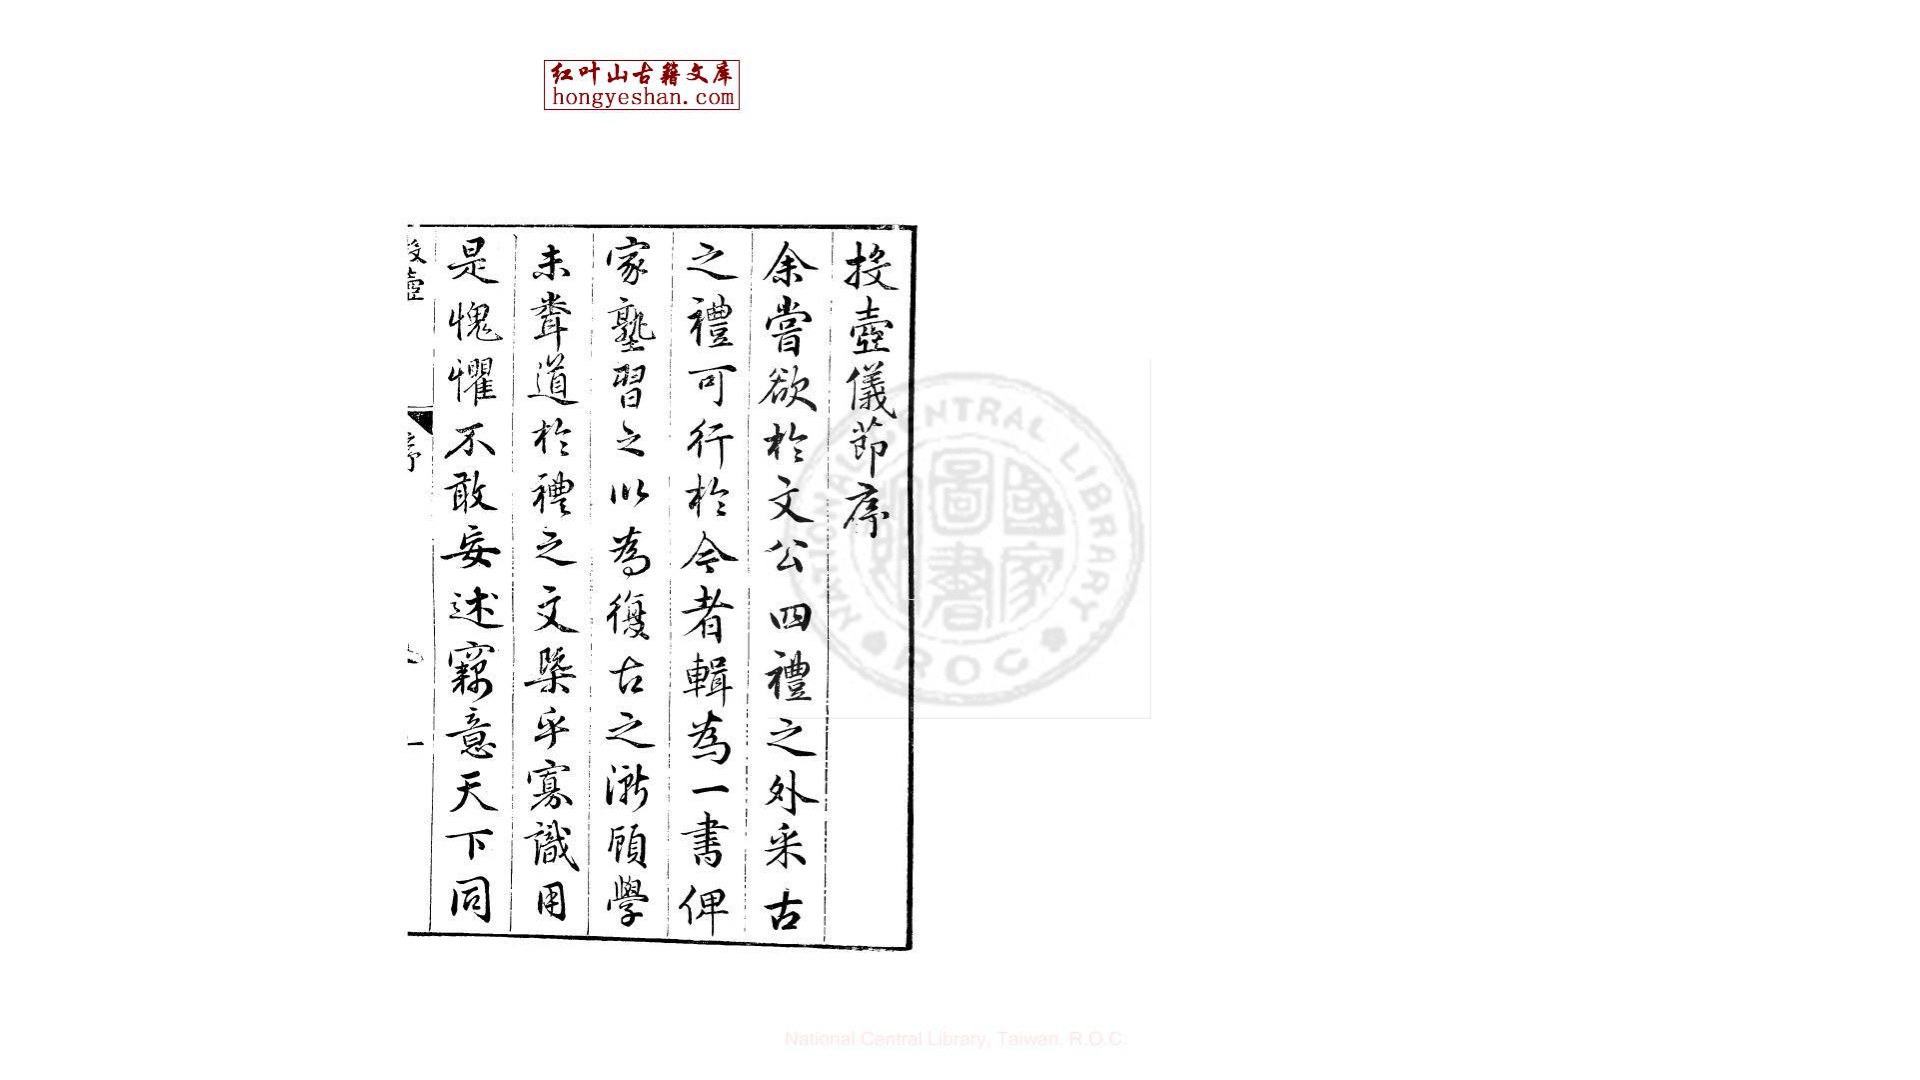 红叶山古籍文库
hongyeshan.com
投壺儀節序
余嘗欲於文公四禮之外采古
之禮可行於今者輯為一書俾
家塾習之以為復古之漸顧學
未聞道於禮之文槩乎寡識用
是愧懼不敢妄述竊意天下同
投壺
序
一
NATIONAL CENTRAL LIBRARY
ROC
國家圖書館
National Central Library, Taiwan. R.O.C